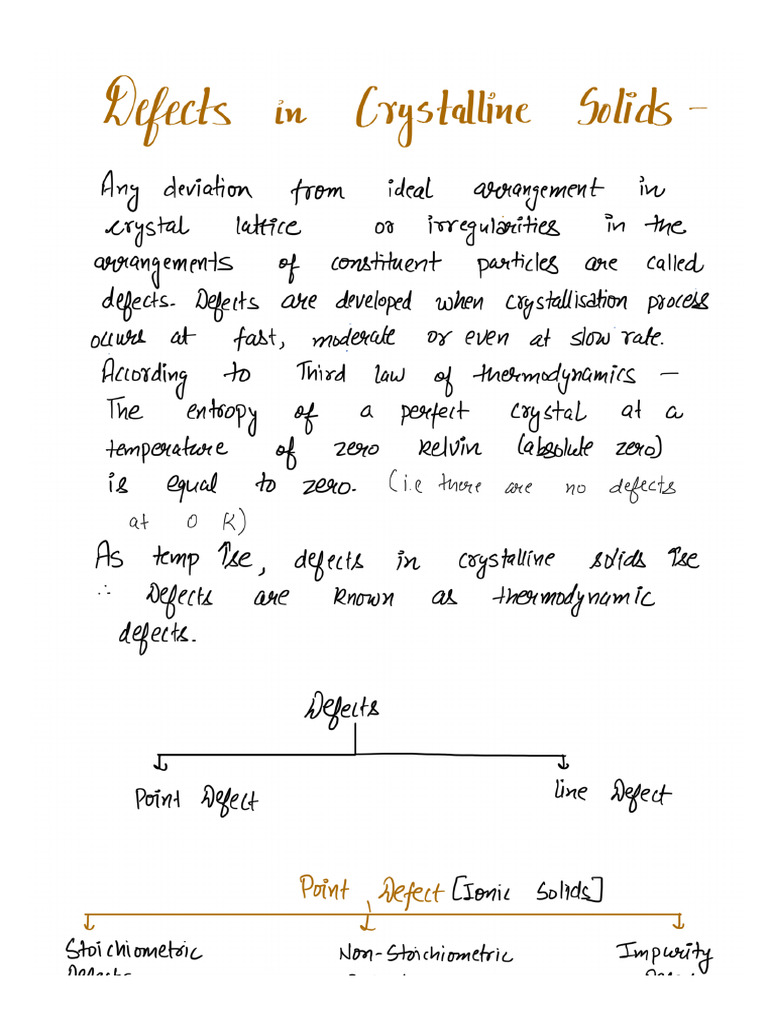 Defects in Crystalline Solids -
Any deviation from ideal arrangement in
crystal lattice or irregularities in the
arrangements of constituent particles are called
defects. Defects are developed when crystallisation process
occurs at fast, moderate or even at slow rate.
According to Third law of thermodynamics -
The entropy of a perfect crystal at a
temperature of zero kelvin (absolute zero)
is equal to zero. (i.e there are no defects
at 0 K)
As temp ↑se, defects in crystalline solids ↑se
∴ Defects are known as thermodynamic
defects.
Defects
Point Defect line Defect
Point Defect [Ionic Solids]
Stoichiometric Non-Stoichiometric Impurity